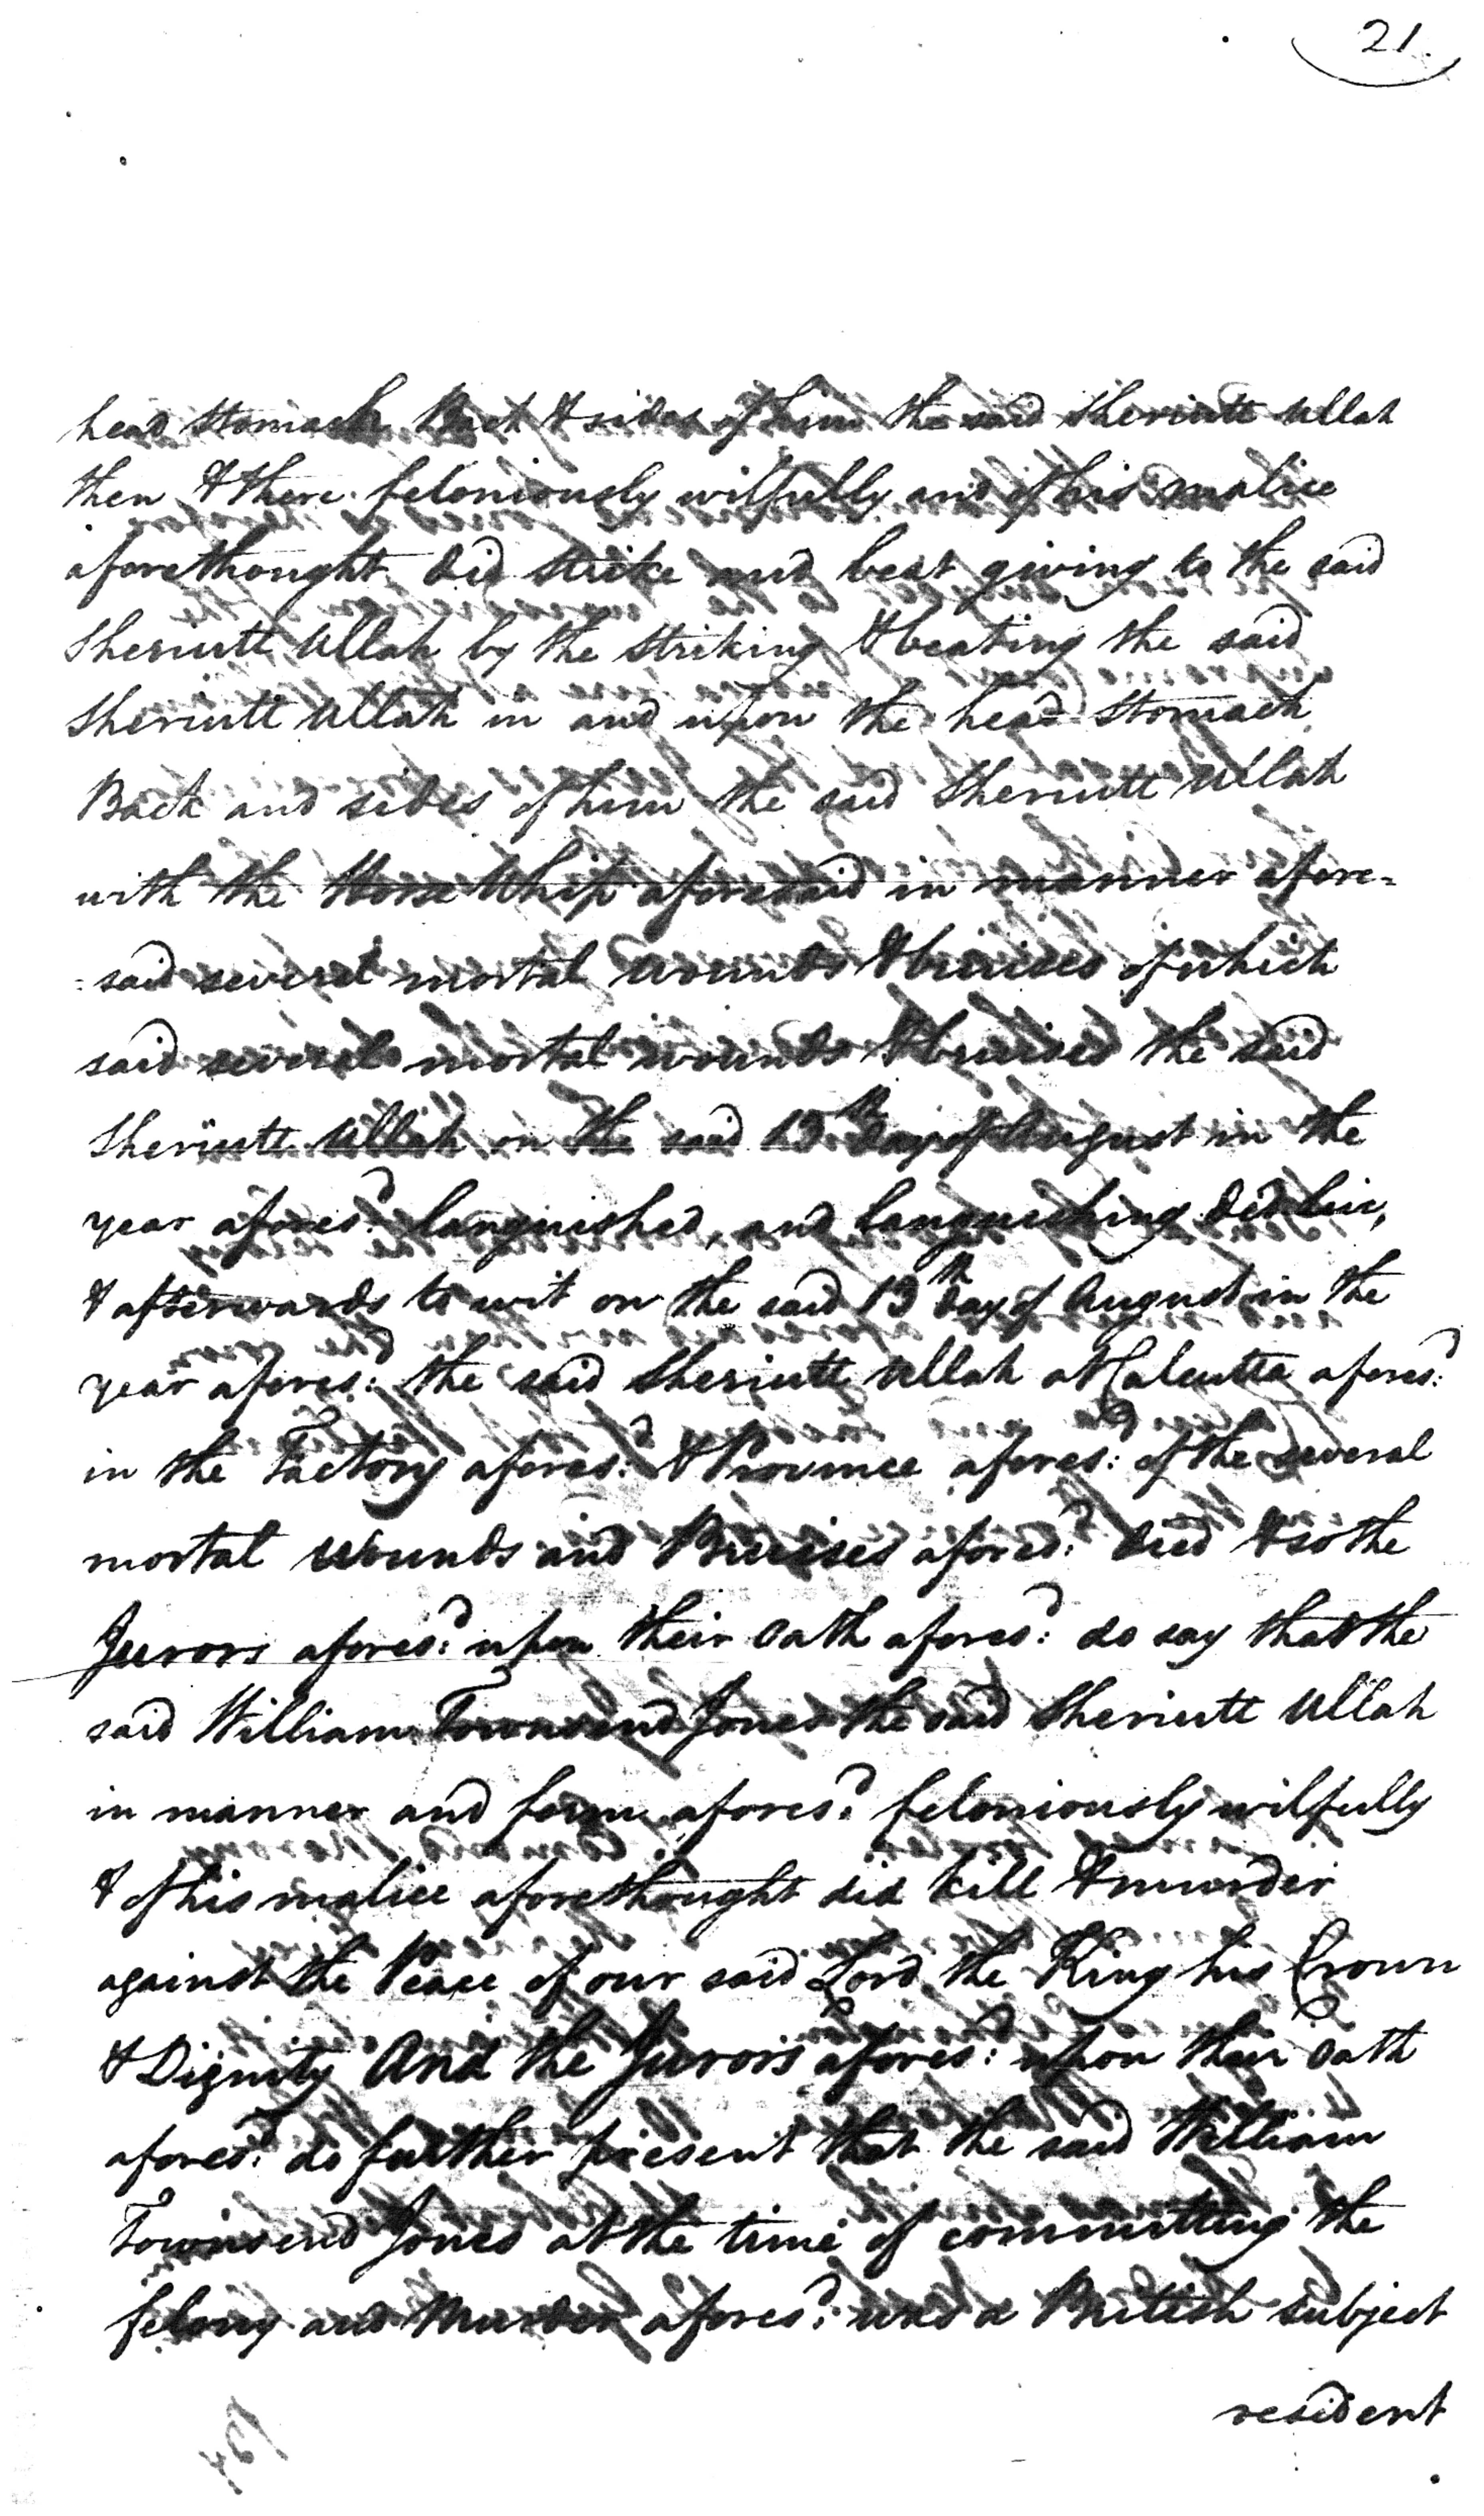 21.
head stomach Back & sides of him the said Sheriutt Ullah
then & there feloniously wilfully and of his malice
aforethought did strike and beat giving to the said
Sheriutt Ullah by the striking & beating the said
Sheriutt Ullah in and upon the head stomach
Back and sides of him the said Sheriutt Ullah
with the Horse Whip aforesaid in manner afore=
=said several mortal wounds & bruises of which
said several mortal wounds & bruises the said
Sheriutt Ullah on the said 13th day of August in the
year afores:d languished, and languishing did live,
& afterwards to wit on the said 13th day of August in the
year afores:d the said Sheriutt Ullah at Calcutta afores:d
in the Factory afores:d & Province afores:d of the several
mortal wounds and Bruises afores:d died & so the
Jurors afores:d upon their oath afores:d do say that the
said William Townsend Jones the said Sheriutt Ullah
in manner and form afores:d feloniously wilfully
& of his malice aforethought did kill & murder
against the Peace of our said Lord the King his Crown
& Dignity And the Jurors afores:d upon their oath
afores:d do further present that the said William
Townsend Jones at the time of committing the
felony and Murder afores:d was a British subject
resident